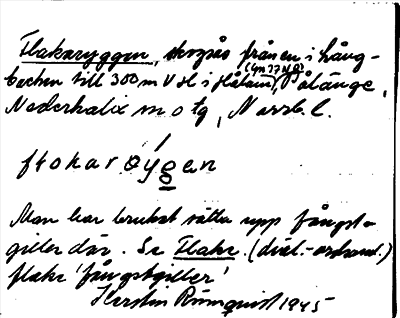 Flakaryggen, skogsås från en i häng-
backen till 300 m V bl i 
Nederkalix sn o tg, Norrb. l.
flokarøýgen
Man har brukat sätta upp fångst-
giller där. Se Flake. (dial.-ordsaml.)
flake 'fångstgiller'
Kerstin Rönnqvist 1945